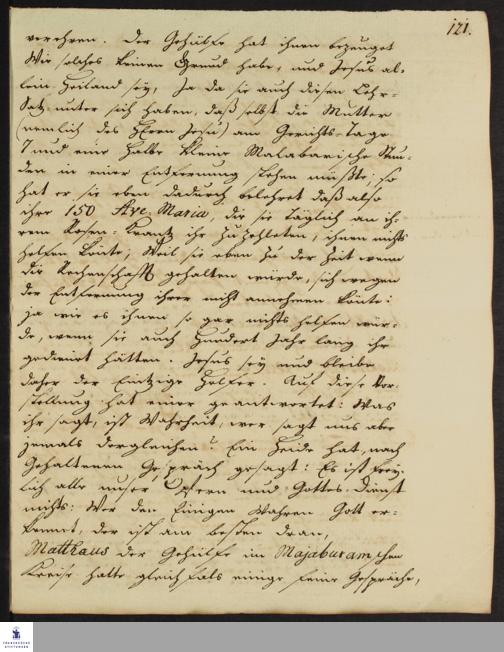 121.
verehren. Der Gehülfe hat ihnen bezeuget
Wie solches keinen Grund habe, und Jesus al-
lein Heiland sey, Ja da sie auch diesen Lehr-
Satz unter sich haben, daß selbst die Mutter
(nemlich des HErrn Jesu) am Gerichts-Tage
7 und eine halbe kleine Malabarische Stun-
den in einer Entfernung stehen müßte; so
hat er sie eben dadurch belehret daß also
ihre 150 Ave Maria, die sie täglich an ih-
rem Rosen-Krantz ihr zuzehleten, ihnen nichts
helfen könte; Weil sie eben zu der Zeit wenn
die Rechenschafft gehalten würde, sich wegen
der Entfernung ihrer nicht annehmen könte:
ja wie es ihnen so gar nichts helfen wür-
de, wenn sie auch hundert Jahr lang ihr
gedienet hätten. Jesus sey und bleibe
daher der Eintzige Helfer. Auf diese Vor-
stellung hat einer geantwortet: Was
ihr sagt, ist Wahrheit, wer sagt uns aber
jemals dergleichen? Ein Heide hat, nach
Gehaltenen Gespräch gesagt: Es ist frey-
lich alle unser und Gottes-Dienst
nichts: Wer den Einigen Wahren Gott er-
kennet, der ist am besten dran,
Matthäus der Gehülfe im Majaburamschen
Kreise hatte gleichfals einige feine Gespräche,
FRANCKESCHE
STIFTUNGEN